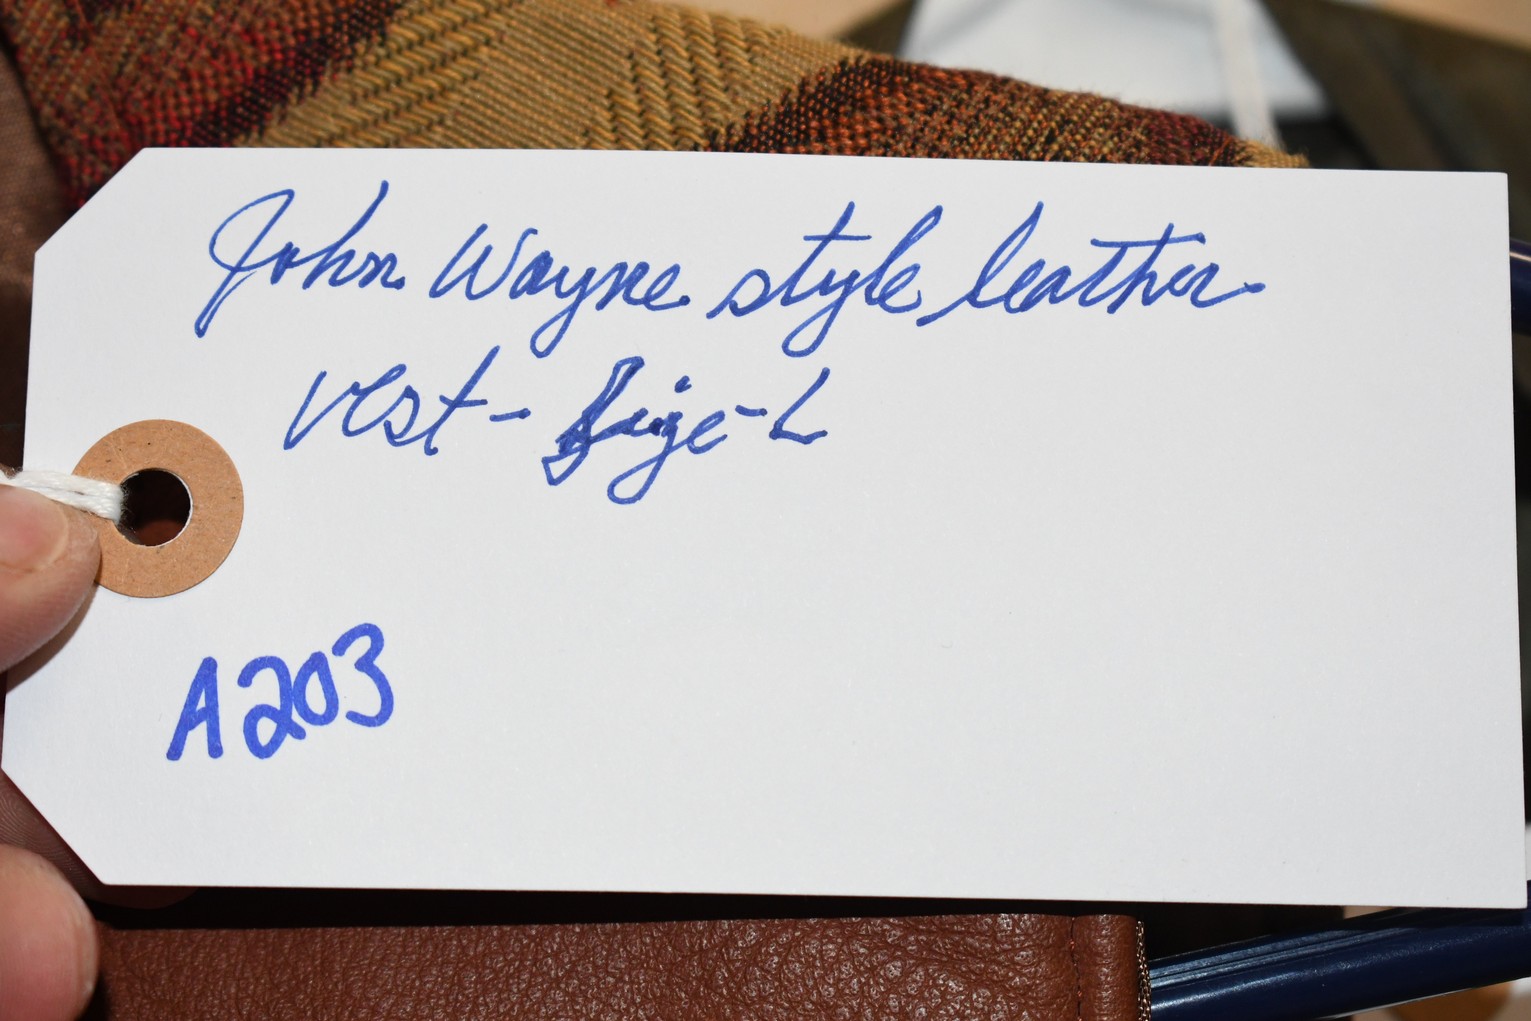 John Wayne style leather
vest - Size - L
A203